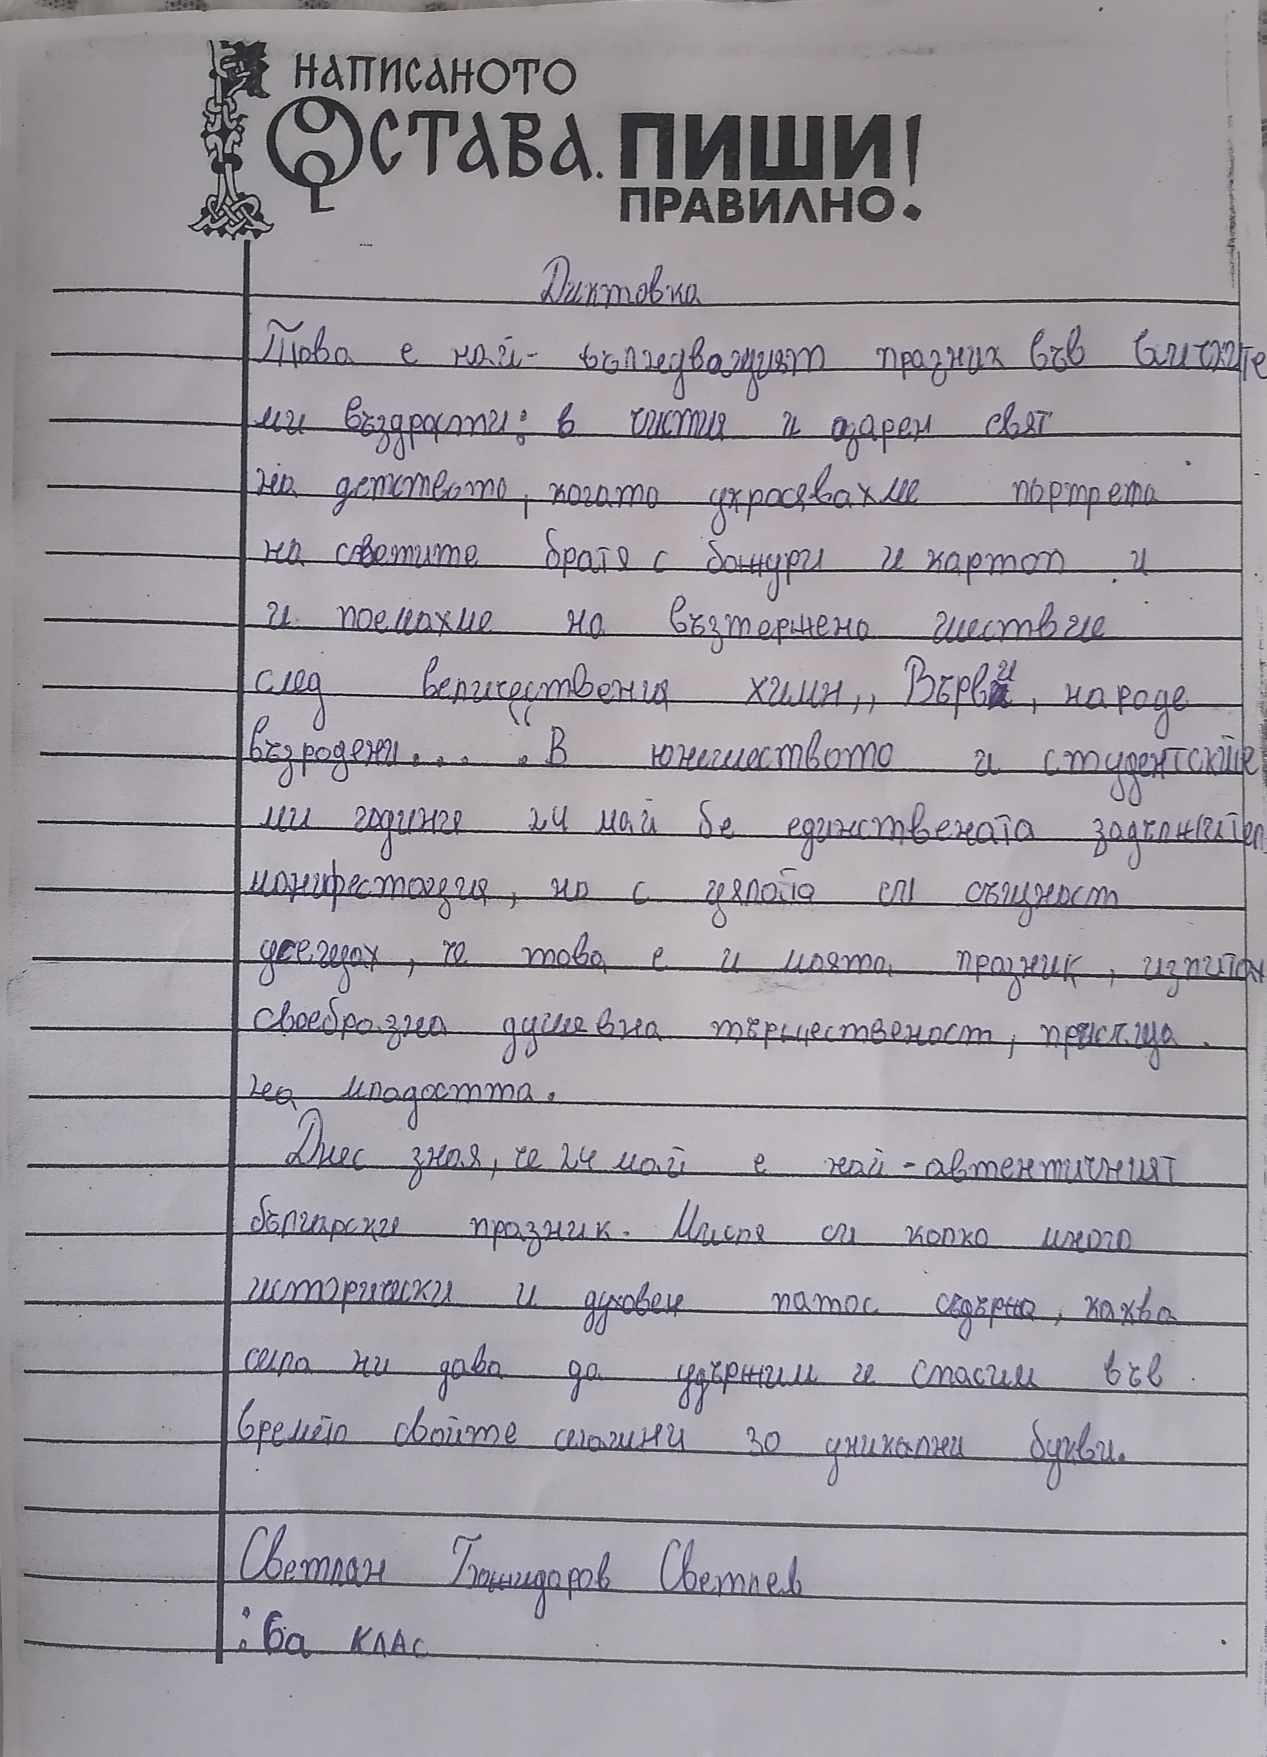 НАПИСАНОТО
ОСТАВА. ПИШИ!
ПРАВИЛНО.
Диктовка
Това е най- въгледващият празник във вичките
ми въздрасти: в чистия и озарен свят
на детството, когато укросявахме портрета
на светите братя с божури и картоп и
и поемахме на възтержено шествие
след величествения химн,, Върви, народе
възродени...." В юншеството и студентските
ми години 24 май бе единствената задължител
манифестация, но с цялата си същност
усещах, че това е и моята празник, изпитах
своебразна душевна тържественост, прислуща
на младостта.
Днес зная, че 24 май е най-автентичният
български празник. Мисля си колко много
исторически и духовен патос съдържа, каква
сила ни дава да удържим и спасим във
времето своите стагини 30 уникални букви.
Светлан Божидаров Светлев
: 6а клас